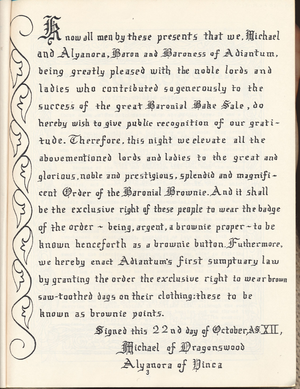 Know all men by these presents that we, Michael
and Alyanora, Baron and Baroness of Adiantum,
being greatly pleased with the noble lords and
ladies who contributed so generously to the
success of the great Baronial Bake Sale, do
hereby wish to give public recognition of our grati-
tude. Therefore, this night we elevate all the
abovementioned lords and ladies to the great and
glorious, noble and prestigious, splendid and magnifi-
cent Order of the Baronial Brownie. And it shall
be the exclusive right of these people to wear the badge
of the order - being, argent, a brownie proper - to be
known henceforth as a brownie button. Futhermore,
we hereby enact Adiantum's first sumptuary law
by granting the order the exclusive right to wear brown
saw-toothed dags on their clothing: these to be
known as brownie points.
Signed this 22nd day of October, AS XII,
Michael of Dragonswood
Alyanora of Vinca
3